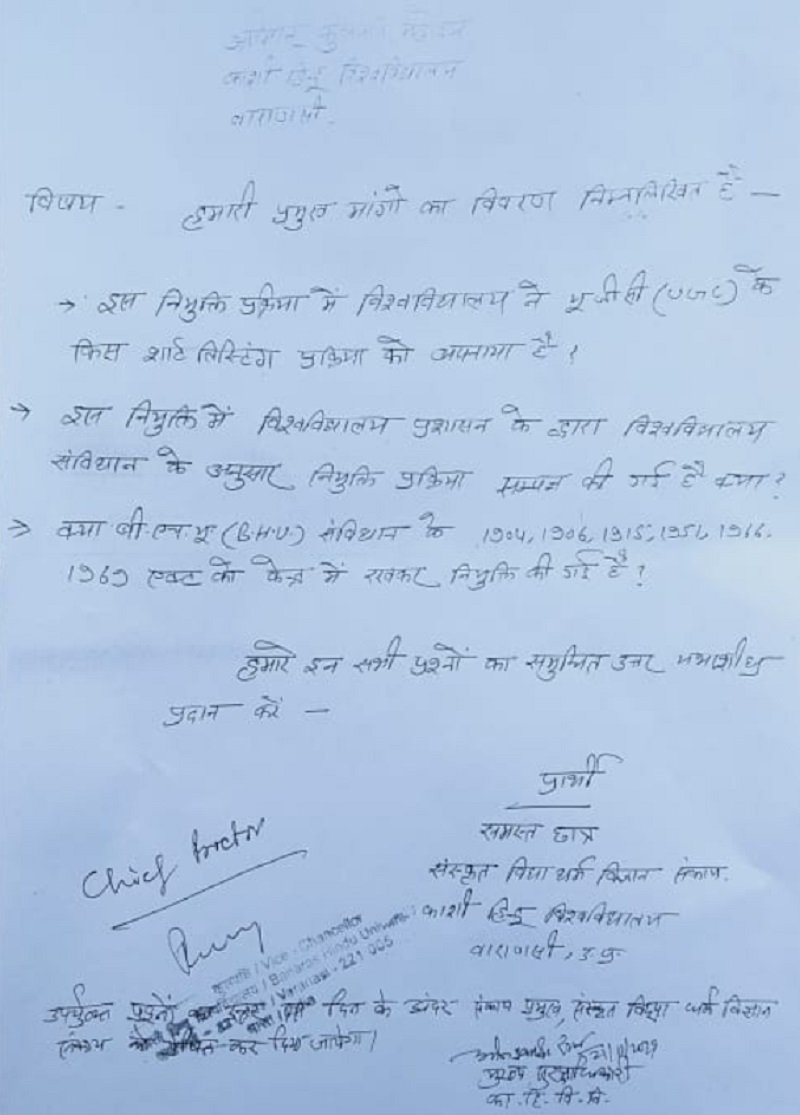 श्रीमान् कुलपति महोदय
काशी हिन्दू विश्वविद्यालय
वाराणसी.
विषय - हमारी प्रमुख मांगो का विवरण निम्नलिखित है —
→ इस नियुक्ति प्रक्रिया में विश्वविद्यालय ने यू.जी.सी (U.G.C) के
किस शार्ट लिस्टिंग प्रक्रिया को अपनाया है ?
→ इस नियुक्ति में विश्वविद्यालय प्रशासन के द्वारा विश्वविद्यालय
संविधान के अनुसार नियुक्ति प्रक्रिया सम्पन्न की गई है क्या ?
→ क्या बी.एच.यू (B.H.U.) संविधान के 1904, 1906, 1915, 1951, 1966,
1969 एक्ट को केन्द्र में रखकर नियुक्ति की गई है ?
हमारे इन सभी प्रश्नों का समुचित उत्तर यथाशीघ्र
प्रदान करें —
प्रार्थी
समस्त छात्र
संस्कृत विद्या धर्म विज्ञान संकाय.
काशी हिन्दू विश्वविद्यालय
वाराणसी, उ.प्र.
Chief Proctor
कुलपति / Vice - Chancellor
/ Banaras Hindu University
/ Varanasi - 221 005
उपर्युक्त प्रश्नों का उत्तर दिन के अंदर संकाय प्रमुख, संस्कृत विद्या धर्म विज्ञान
संकाय को कर दिया जायेगा।
मुख्य सुरक्षाधिकारी
का. हि. वि. वि.